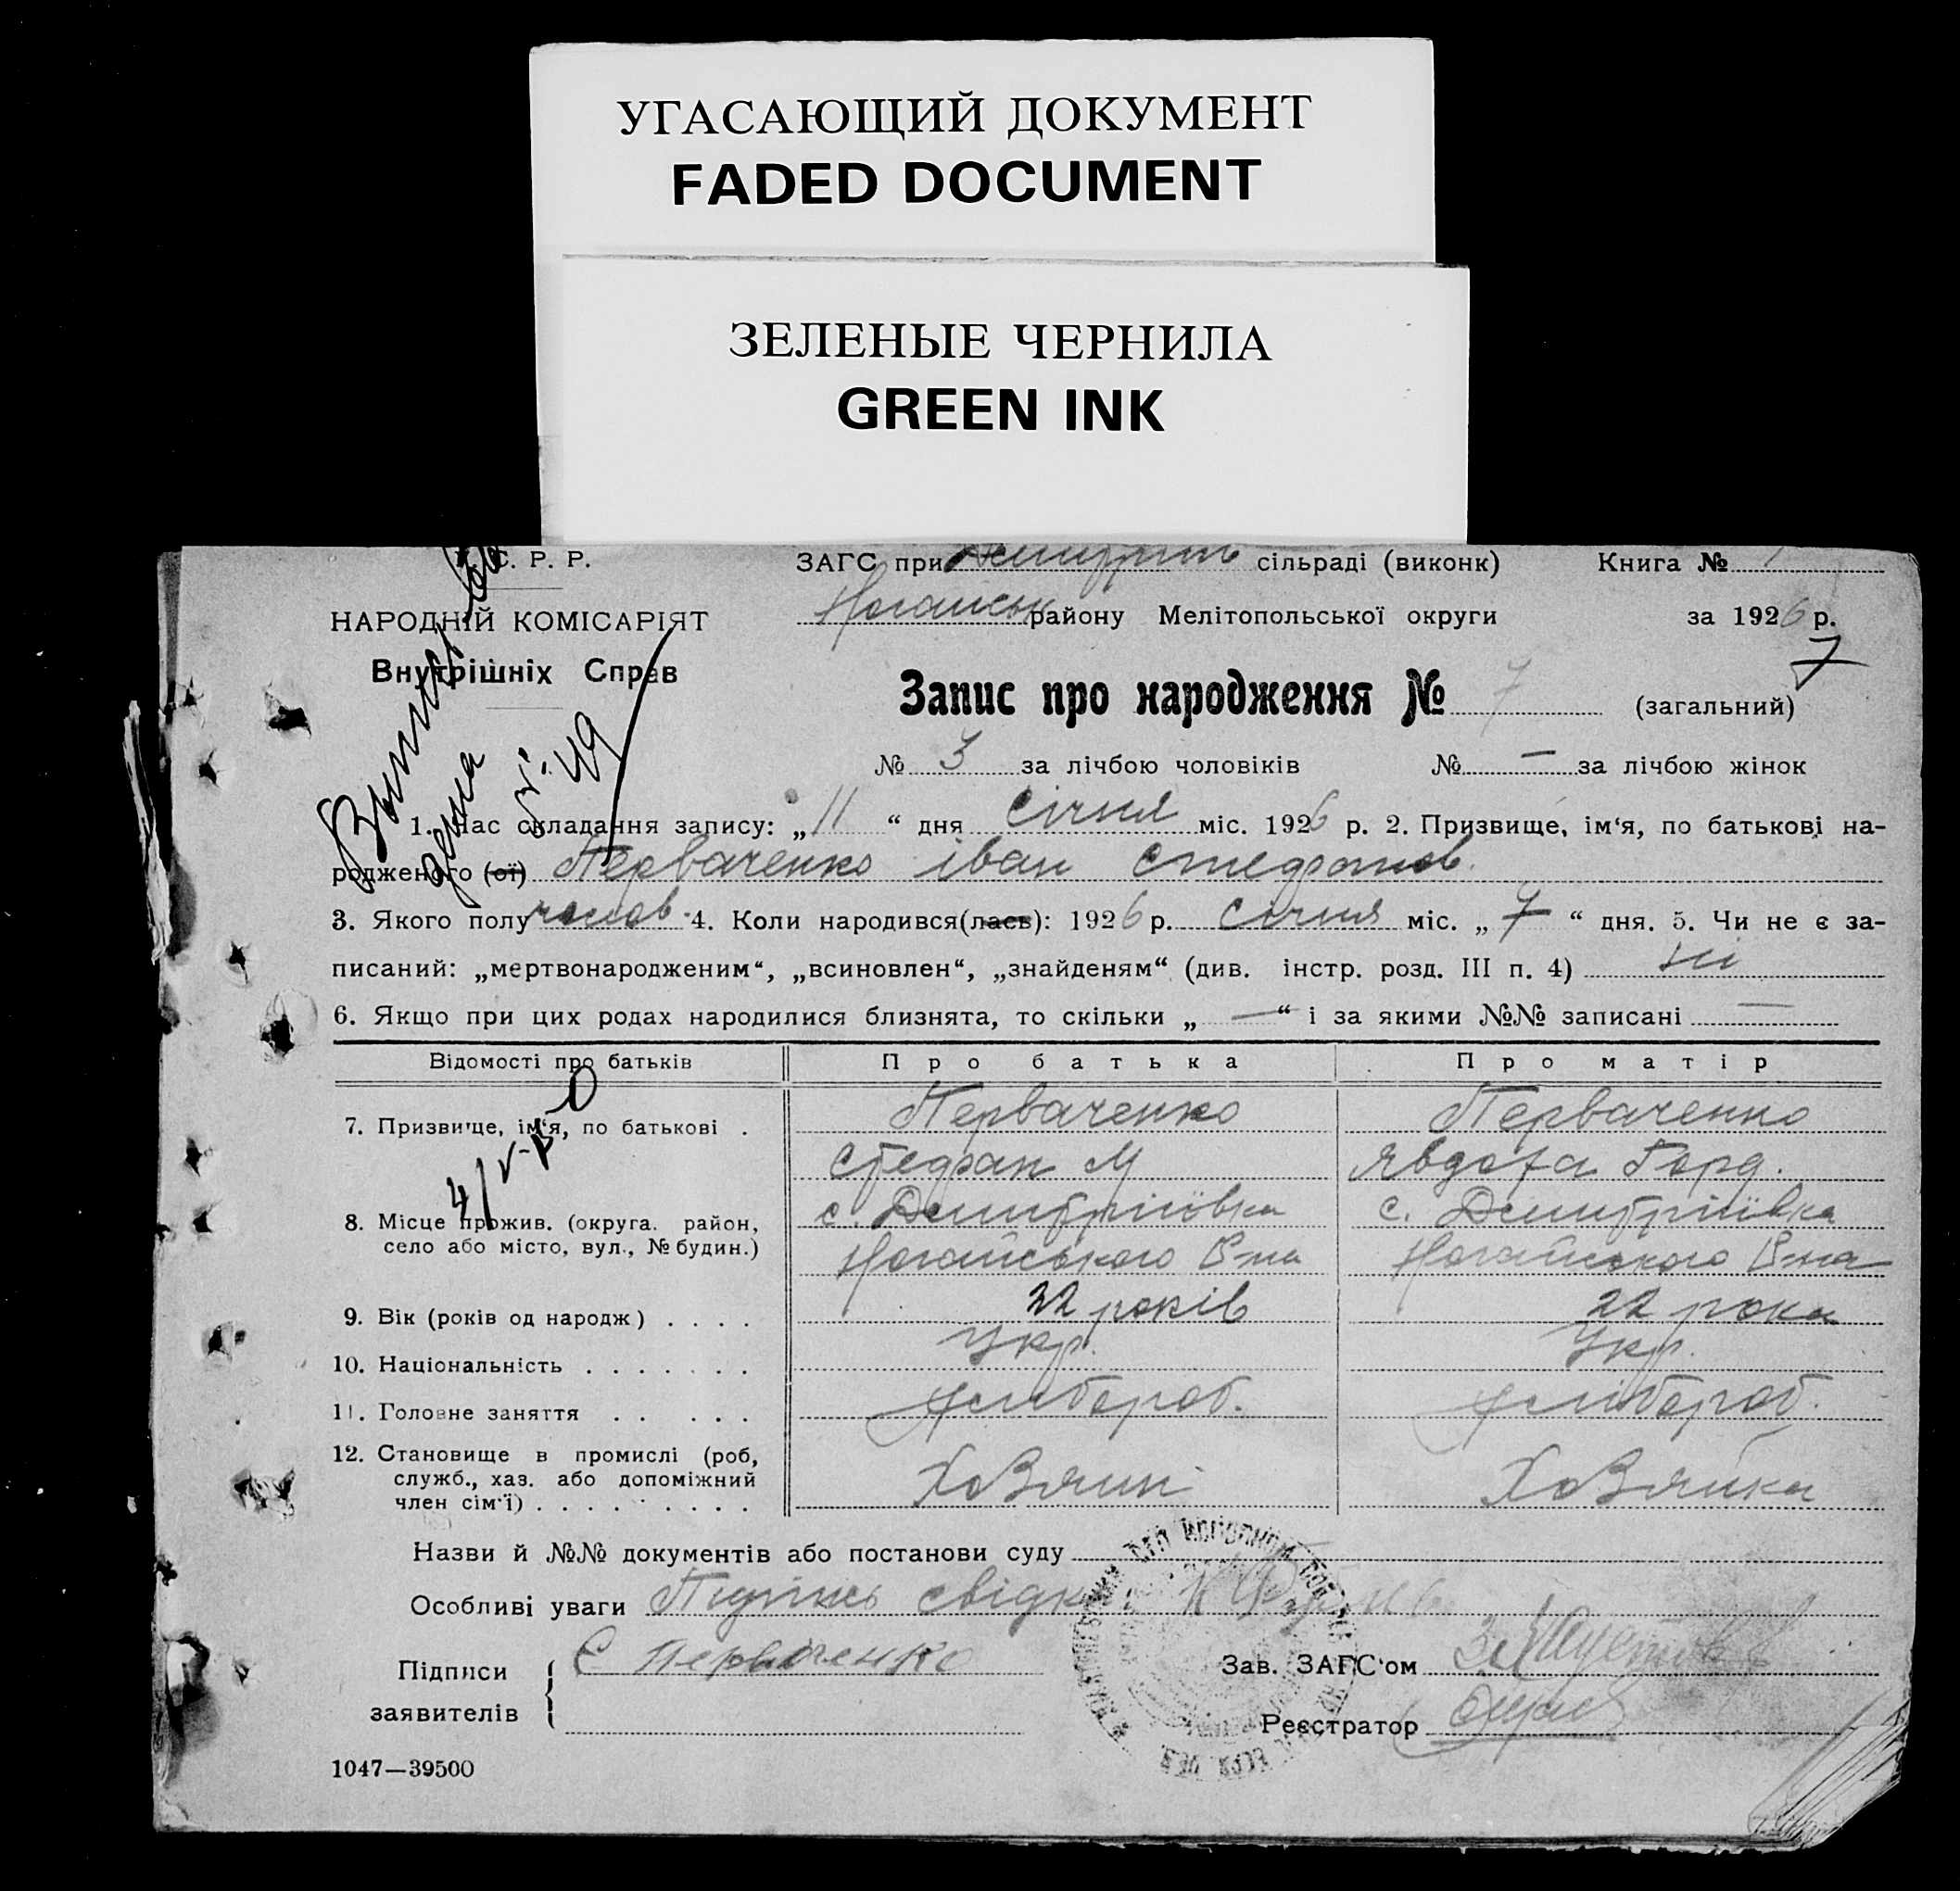 УГАСАЮЩИЙ ДОКУМЕНТ
FADED DOCUMENT
ЗЕЛЕНЫЕ ЧЕРНИЛА
GREEN INK
С. Р. Р. ЗАГС при сільраді (виконк) Книга № 1
НАРОДНІЙ КОМІСАРІЯТ Ногайськ району Мелітопольської округи за 1926 р.
Внутрішніх Справ 7
Запис про народження № 7 (загальний)
№ 3 за лічбою чоловіків № — за лічбою жінок
1. Час складання запису: „11“ дня Січня міс. 1926 р. 2. Призвище, ім‘я, по батькові на-
родженого (ої) Перваченко іван стефанов.
3. Якого полу 4. Коли народився(лаєв): 1926 р. Січня міс. „7“ дня. 5. Чи не є за-
писаний: „мертвонародженим“, „всиновлен“, „знайденям“ (див. інстр. розд. III п. 4) ні
6. Якщо при цих родах народилися близнята, то скільки „—“ і за якими №№ записані —
Відомості про батьків Про батька Про матір
7. Призвище, ім‘я, по батькові . Перваченко Перваченко
Стефан М Явдоха Горд.
8. Місце прожив. (округа. район, с. Дмитріївка с. Дмитріївка
село або місто, вул., № будин.) Ногайського Р-на Ногайського Р-на
9. Вік (років од народж) . . . . 22 років 22 рока
10. Національність . . . . . . . Укр. Укр.
11. Головне заняття . . . . . Хлібороб. Хлібороб.
12. Становище в промислі (роб,
служб., хаз. або допоміжний ХоЗяин ХоЗяйка
член сім‘ї) . . . . . . . . .
Назви й №№ документів або постанови суду
Особливі уваги Підпись свідка
Підписи С Перваченко Зав. ЗАГС‘ом
заявителів Реєстратор
1047—39500